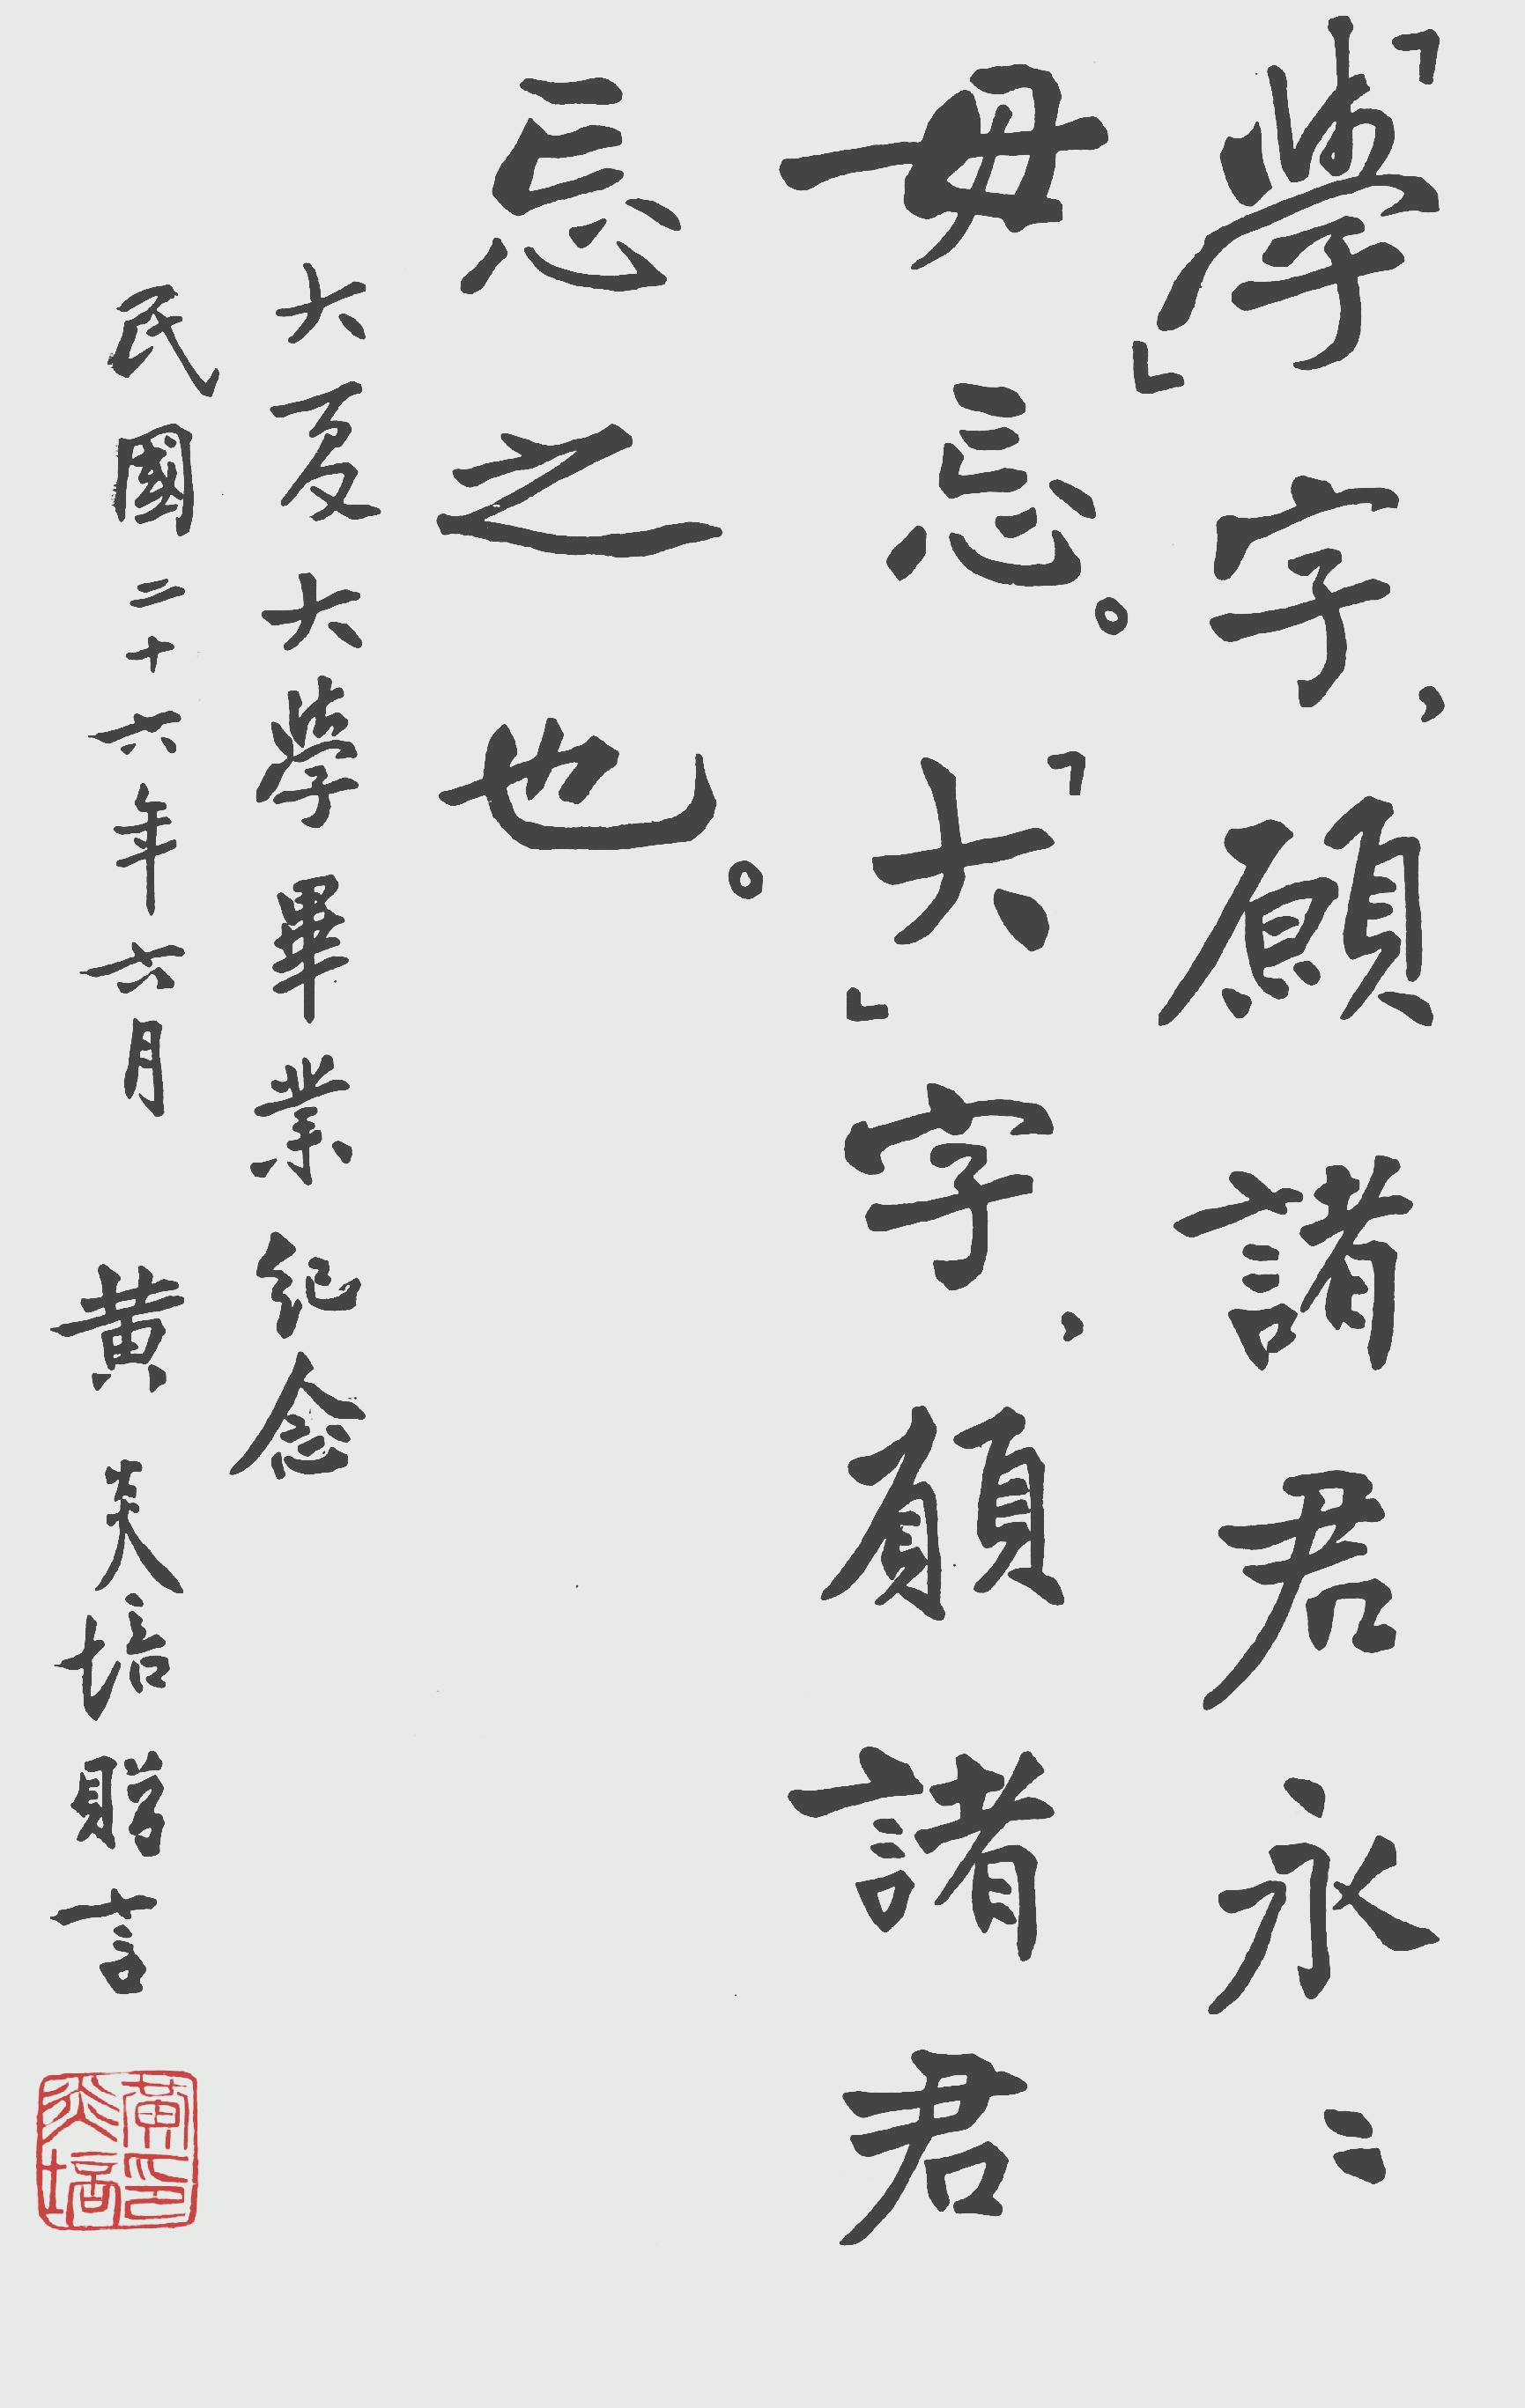 「學」字，願諸君永〻
毋忘。「大」字，願諸君
忘之也。
大夏大學畢業紀念
民國二十六年六月 黄炎培贈言
黄炎培印